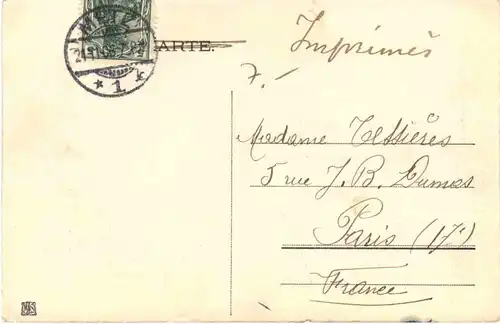 METZ
* 1 k
ARTE.
Imprimés
7.-
Madame Tessières
5 rue J. B. Dumas
Paris (17e)
France